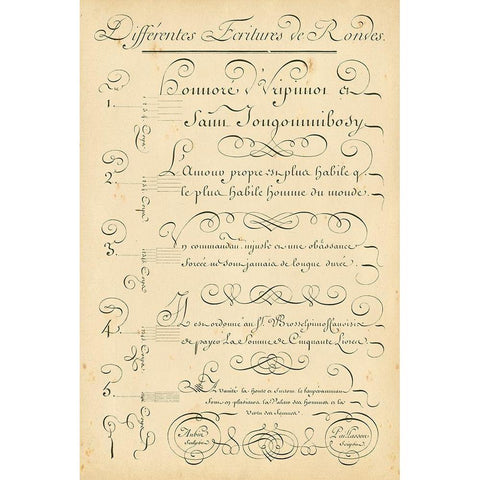 Différentes Ecritures de Rondes.
1.
Honnoré
2.
L'Amour propre est plus habile q
le plus habile homme du monde.
3.
Un commandem. injuste et une obéissance
forcée ne sont jamais de longue durée.
4.
Il est ordonné au Sr.
de payer La Somme de Cinquante Livres
5.
La Vanité la honte et surtout le temperamment
font en plusieurs la Valeur des hommes et la
Vertu des femmes
Aubin Sculpsit
Paillasson Scripsit